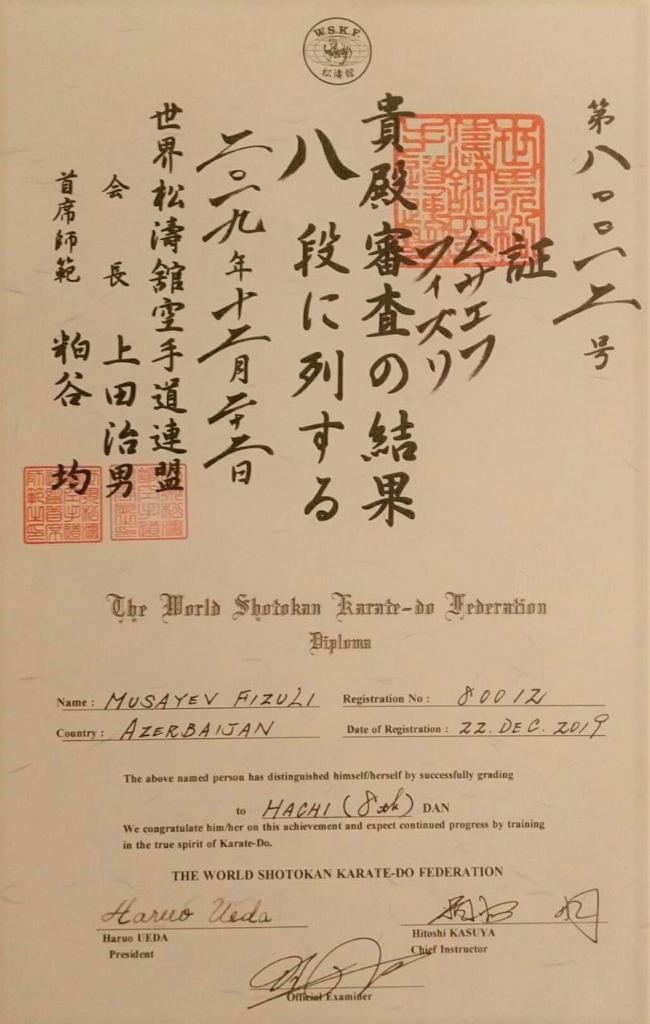 W.S.K.F.
松濤館
第八〇〇一二号
証
ムサエフ
フィズリ
貴殿審査の結果
八段に列する
二〇一九年十二月二十二日
世界松濤舘空手道連盟
会長 上田治男
首席師範 粕谷均
The World Shotokan Karate-do Federation
Diploma
Name : MUSAYEV FIZULI Registration No : 80012
Country : AZERBAIJAN Date of Registration : 22. DEC. 2019
The above named person has distinguished himself/herself by successfully grading
to HACHI (8th) DAN
We congratulate him/her on this achievement and expect continued progress by training
in the true spirit of Karate-Do.
THE WORLD SHOTOKAN KARATE-DO FEDERATION
Haruo Ueda
Haruo UEDA Hitoshi KASUYA
President Chief Instructor
Official Examiner